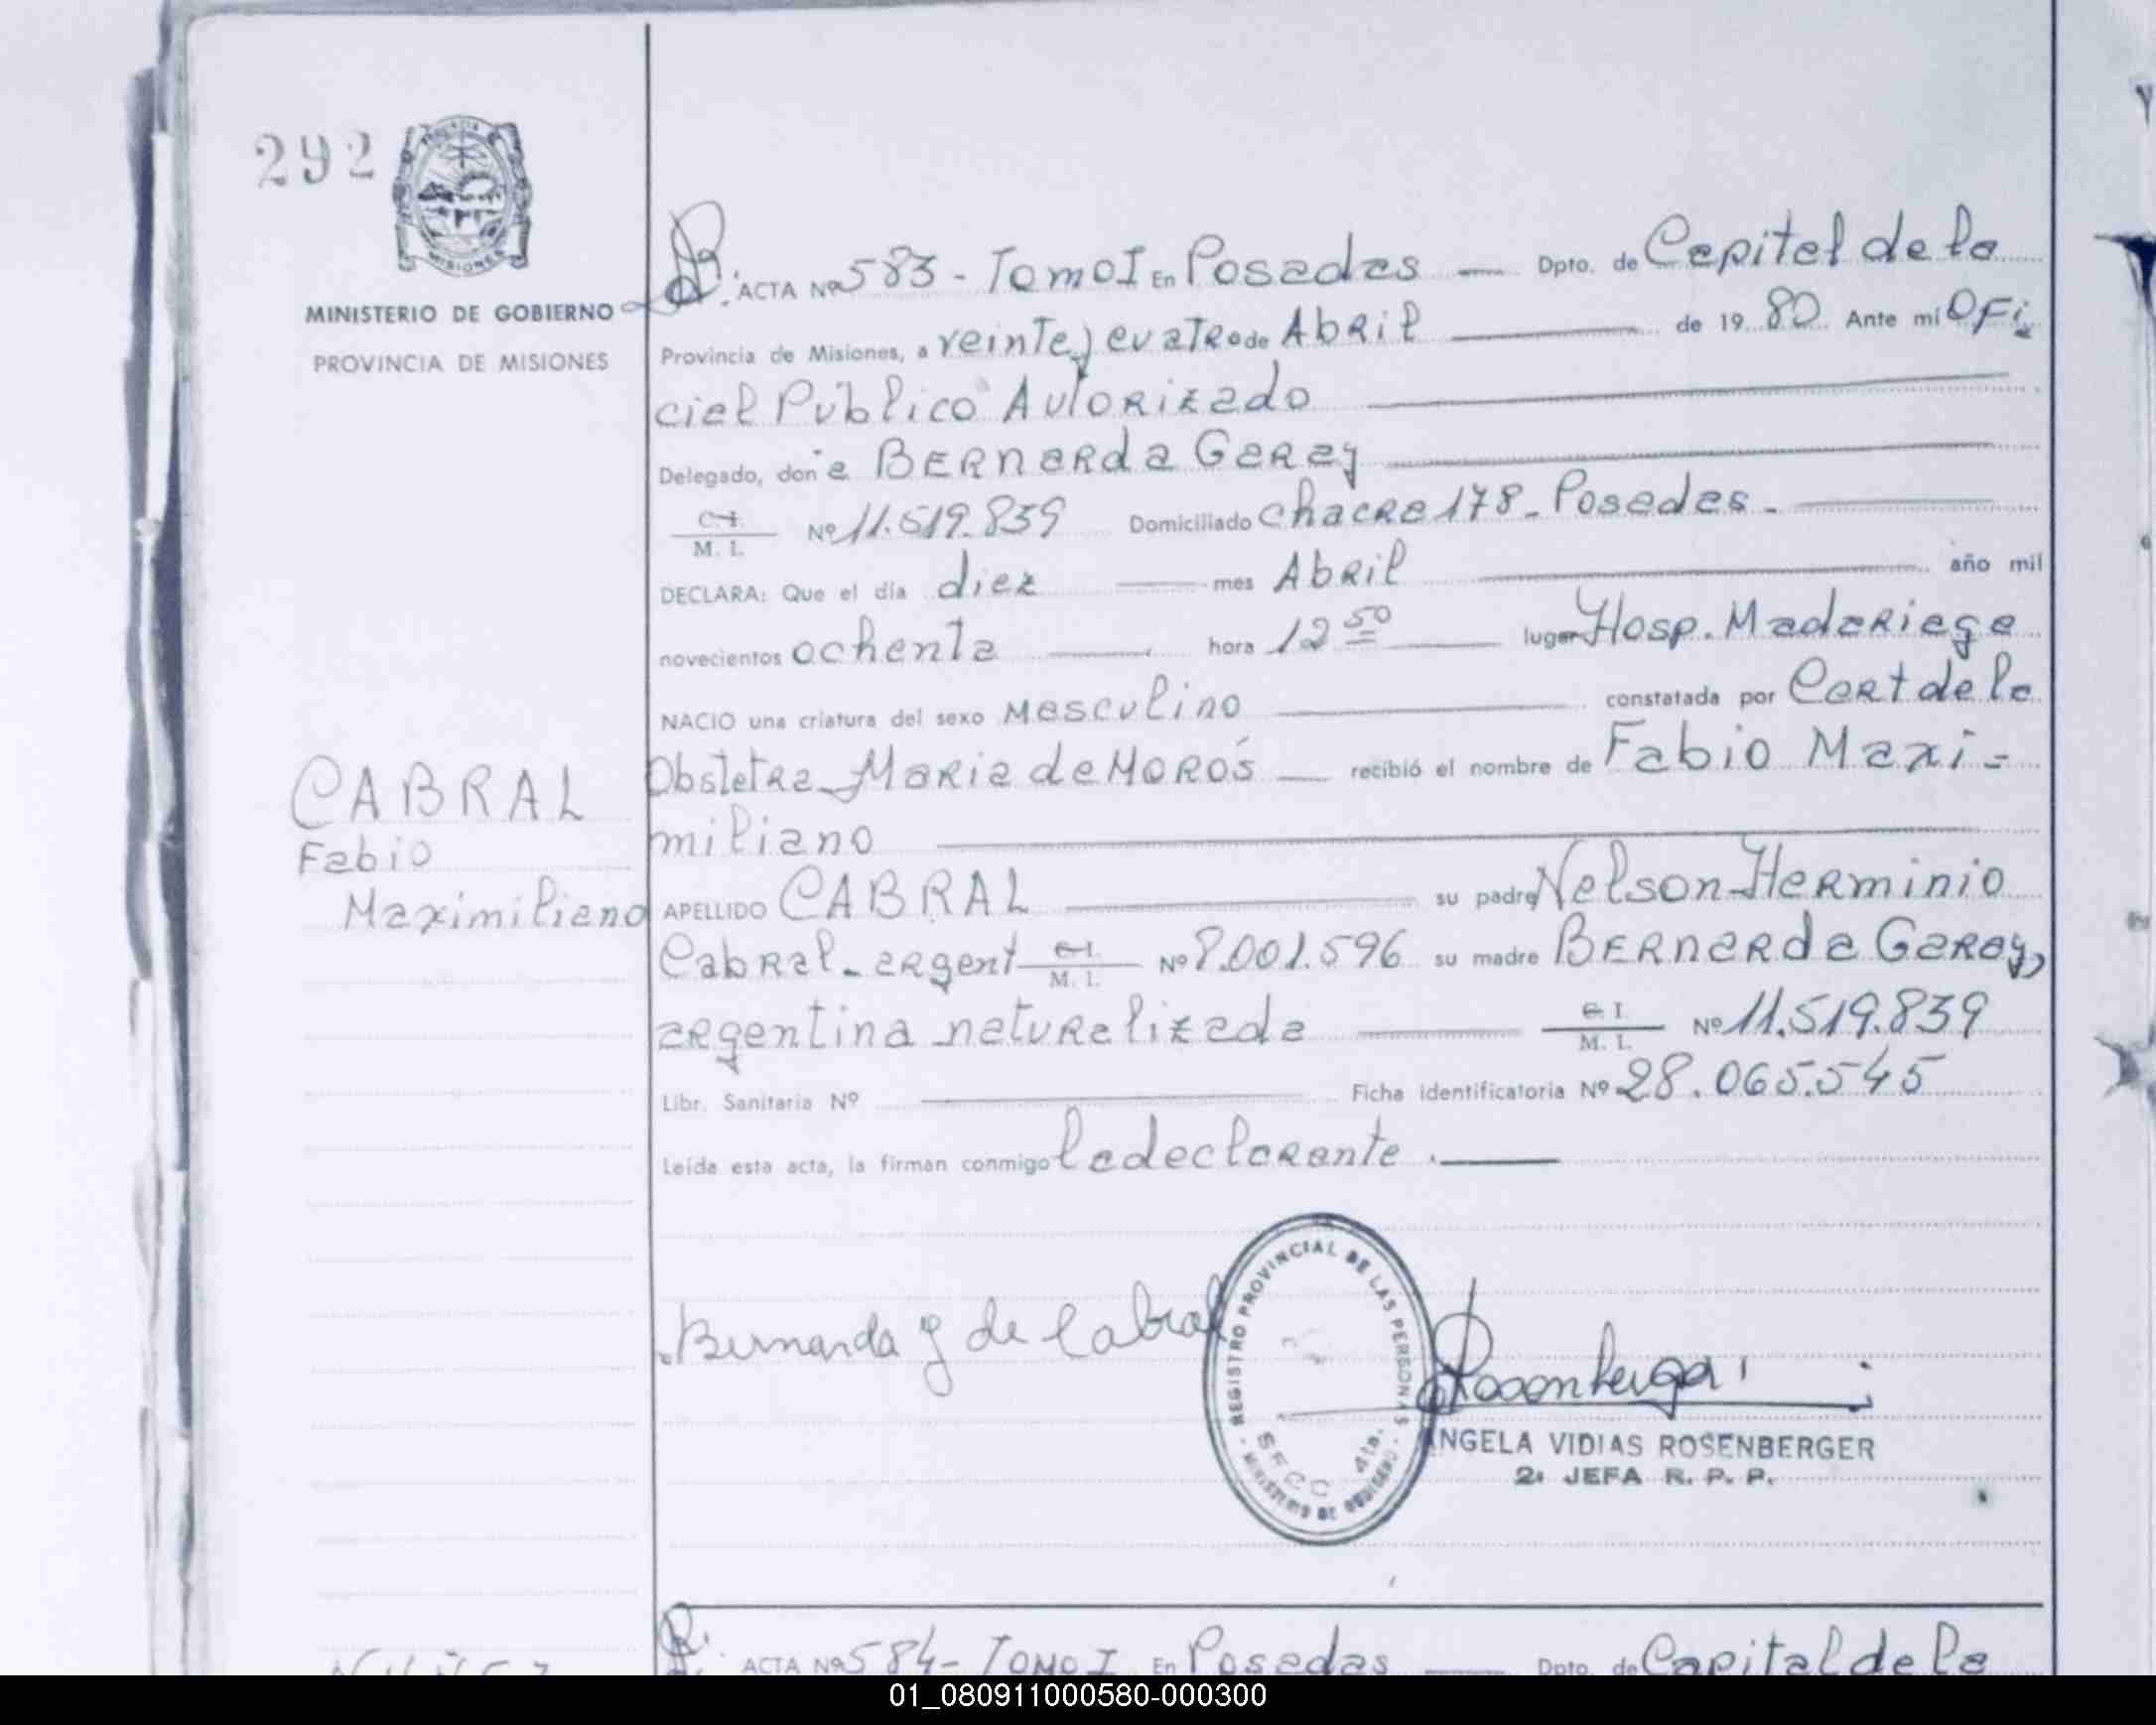 292
PROVINCIA DE
MISIONES
MINISTERIO DE GOBIERNO
PROVINCIA DE MISIONES
ACTA Nº 583 - Tomo I En Posadas Dpto. de Capital de la
Provincia de Misiones, a veinte y cuatro de Abril de 1980 Ante mi Ofi
cial Público Autorizado
Delegado, don a BERNARda GaRay
C.I. M. I. Nº 11.519.839 Domiciliado Chacra 178 - Posadas -
DECLARA: Que el día diez mes Abril año mil
novecientos ochenta hora 12 50 lugar Hosp. Madariaga
NACIO una criatura del sexo Masculino constatada por Cert de la
Obstetra - Maria de MOROS recibió el nombre de Fabio Maxi -
miliano
CABRAL
Fabio
Maximiliano
APELLIDO CABRAL su padre Nelson Herminio
Cabral - argent C.I. M. I. Nº 8.001.596 su madre BERNARda GaRay,
argentina naturalizada C.I. M. I. Nº 11.519.839
Libr. Sanitaria Nº Ficha identificatoria Nº 28.065.545
Leída esta acta, la firman conmigo la declarante .
Bernarda G de Cabral
REGISTRO PROVINCIAL DE LAS PERSONAS
SECC 4ta.
- MINISTERIO DE GOBIERNO -
Rosenberger
ANGELA VIDIAS ROSENBERGER
2ª JEFA R. P. P.
ACTA Nº 584 - TOMO I En Posadas Dpto. de Capital de la
01_080911000580-000300